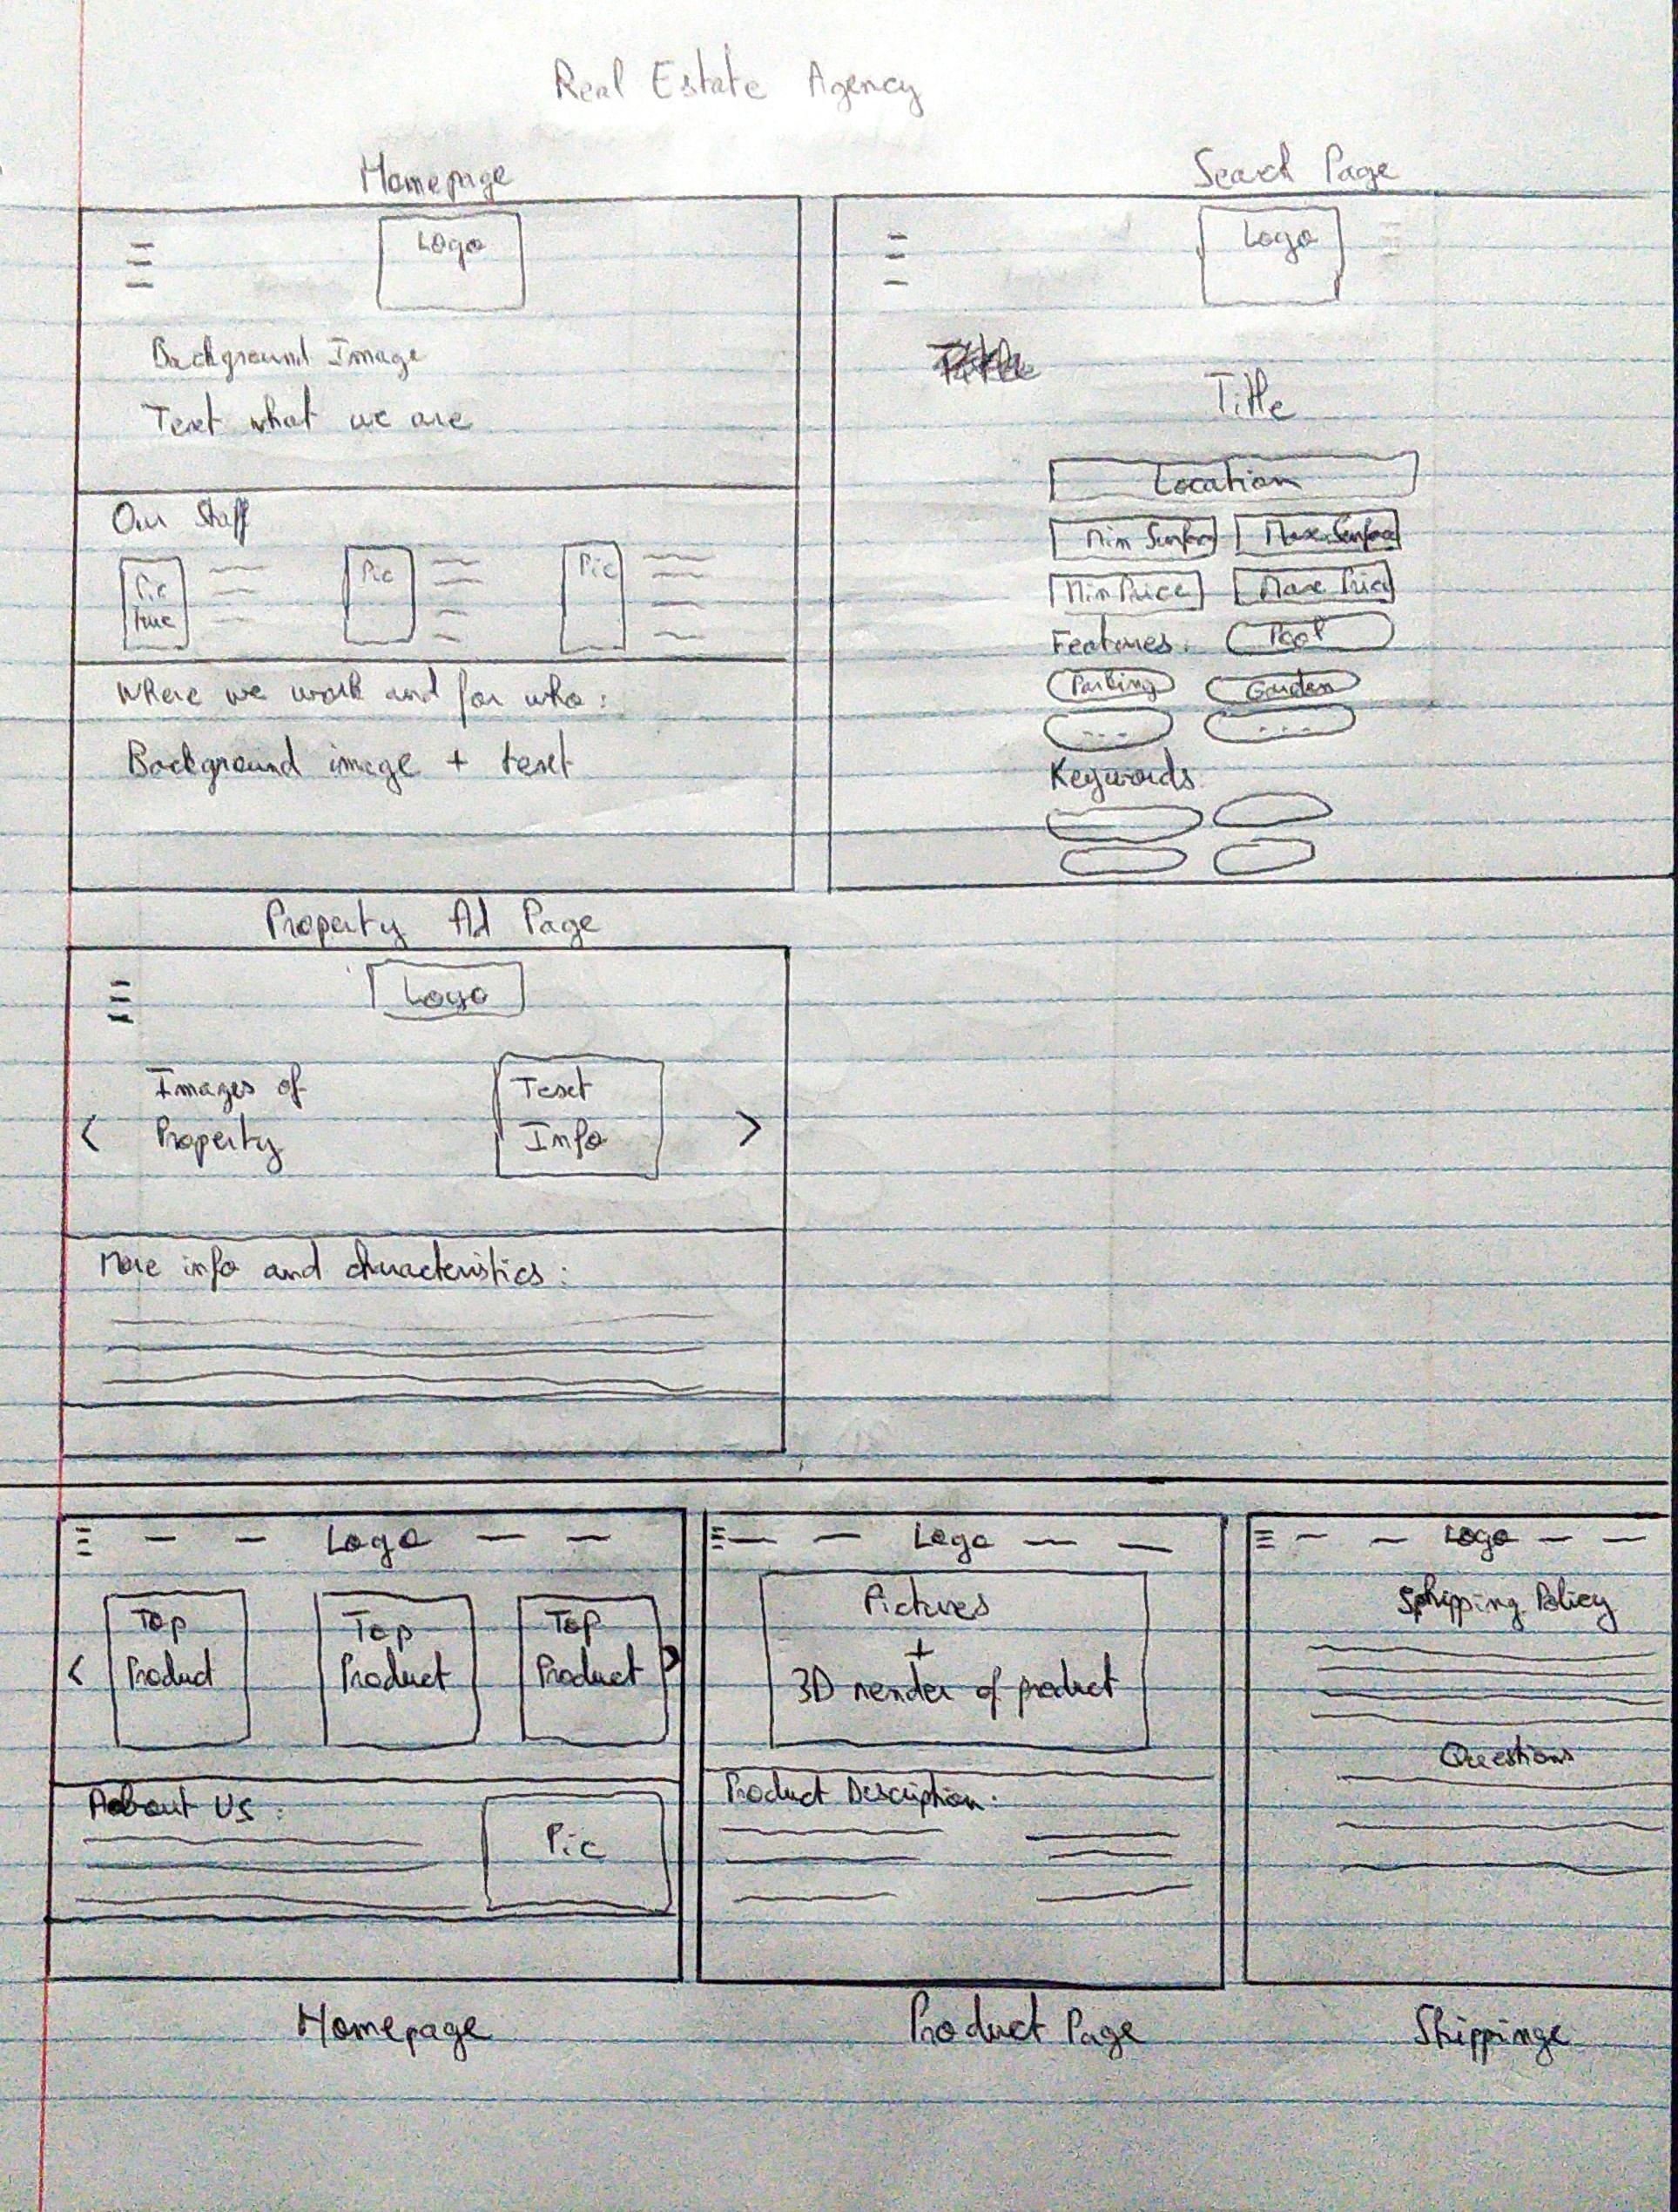 Real Estate Agency
Homepage
Logo
Background Image
Text what we are
Our Staff
Pic
ture
Pic
Pic
Where we work and for who:
Background image + text
Search Page
Logo
Title
Location
Min Surface
Max Surface
Min Price
Max Price
Features:
Pool
Parking
Garden
...
...
Keywords
Property Ad Page
Logo
Images of
Property
<
Text
Info
>
More info and characteristics:
Logo
Top
Product
Top
Product
Top
Product
<
>
About Us:
Pic
Homepage
Logo
Pictures
+
3D render of product
Product Description:
Product Page
Logo
Shipping Policy
Questions
Shippinge